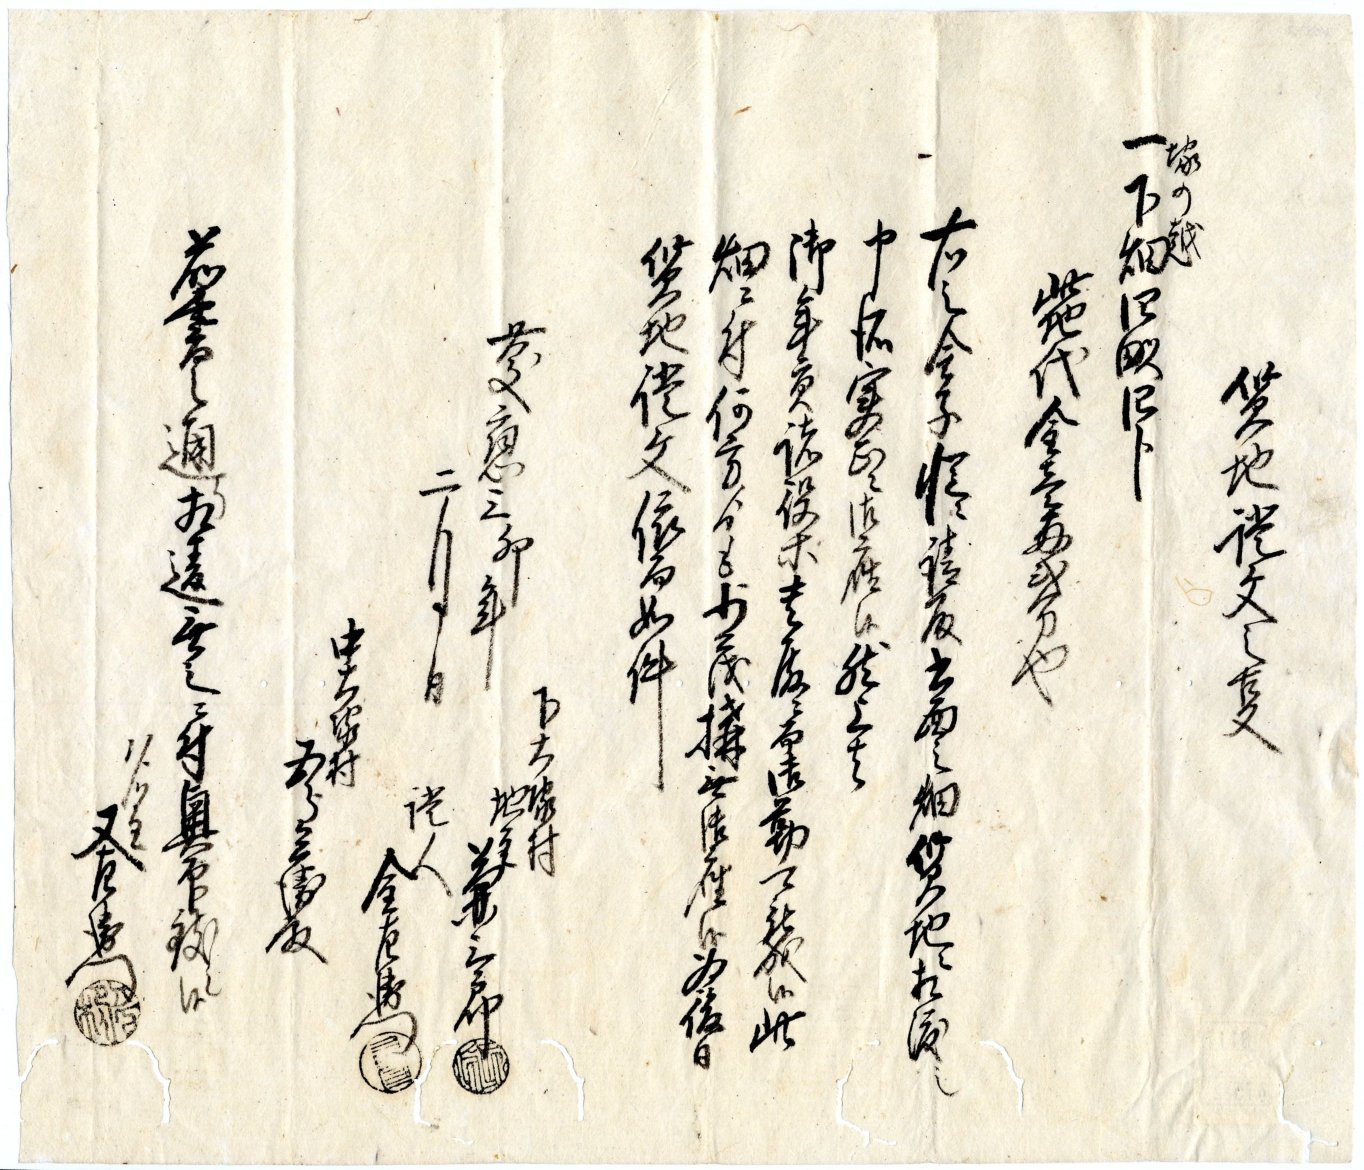 質地証文之事
塚の越
一下畑四畝四卜
此地代金壱両弐分也
右之金子慥ニ請取書面之畑質地ニ相渡し
申所実正ニ御座候然上者
御年貢諸役等貴殿ニ而御勤可被成候此
畑ニ付何方ゟも少茂構無御座候為後日
質地証文依而如件
慶応三卯年
二月 日
下大塚村
地主
三郎
証人
金右衛門
中大塚村
殿
前書之通り相違無之ニ付奥印致し候
又右衛門